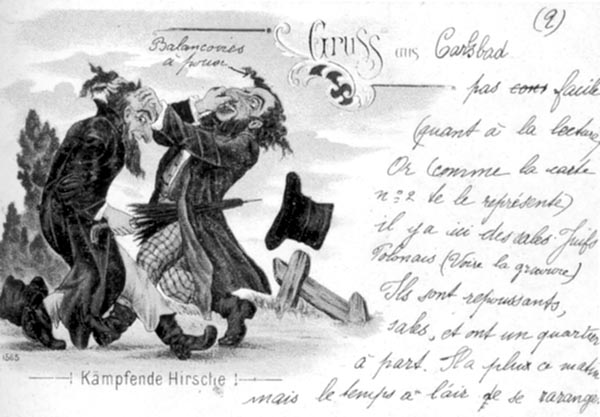 (2)
Gruss aus Carlsbad.
Balançoires
à poux
pas cont facile
(quant à la lecture)
Or (comme la carte
n° 2 te le représente)
il y a ici des sales Juifs
Polonais (Voire la gravure)
Ils sont repoussants,
sales, et ont un quartier
à part. Il a plux ce matin
mais le temps à l'air de se rarange
1565
Kämpfende Hirsche